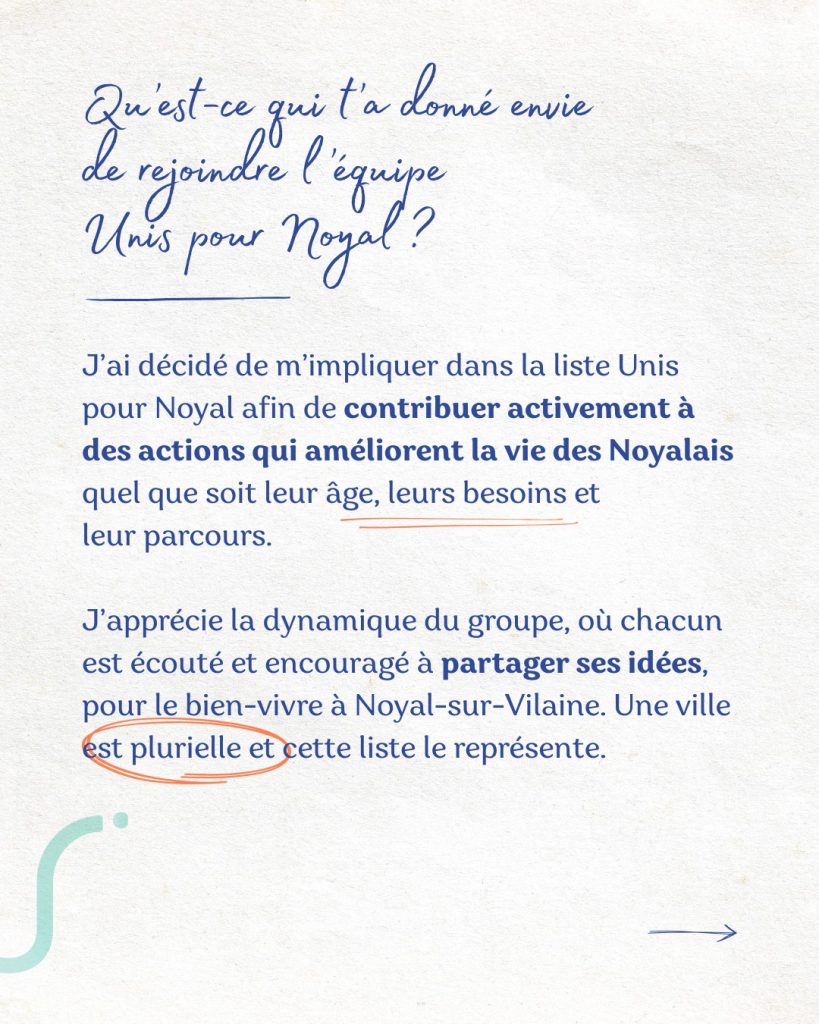 Qu'est-ce qui t'a donné envie
de rejoindre l'équipe
Unis pour Noyal ?
J'ai décidé de m'impliquer dans la liste Unis
pour Noyal afin de contribuer activement à
des actions qui améliorent la vie des Noyalais
quel que soit leur âge, leurs besoins et
leur parcours.
J'apprécie la dynamique du groupe, où chacun
est écouté et encouragé à partager ses idées,
pour le bien-vivre à Noyal-sur-Vilaine. Une ville
est plurielle et cette liste le représente.